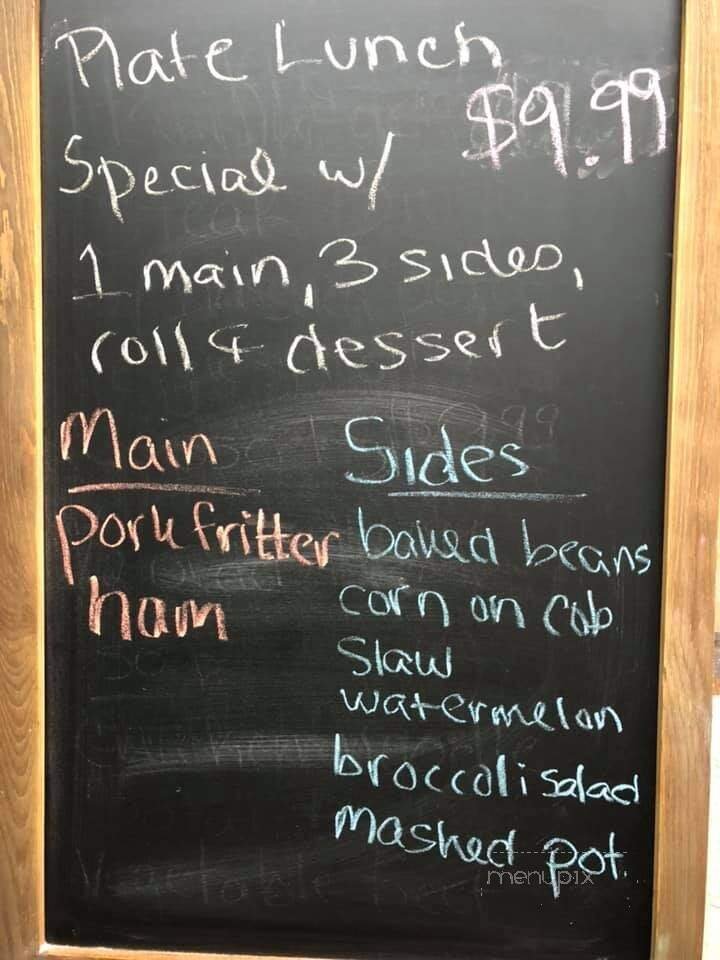 Plate Lunch
$9.99
Special w/
1 main, 3 sides,
roll & dessert
Main
pork fritter
ham
Sides
baked beans
corn on cob
Slaw
watermelon
broccoli salad
mashed pot.
menupix